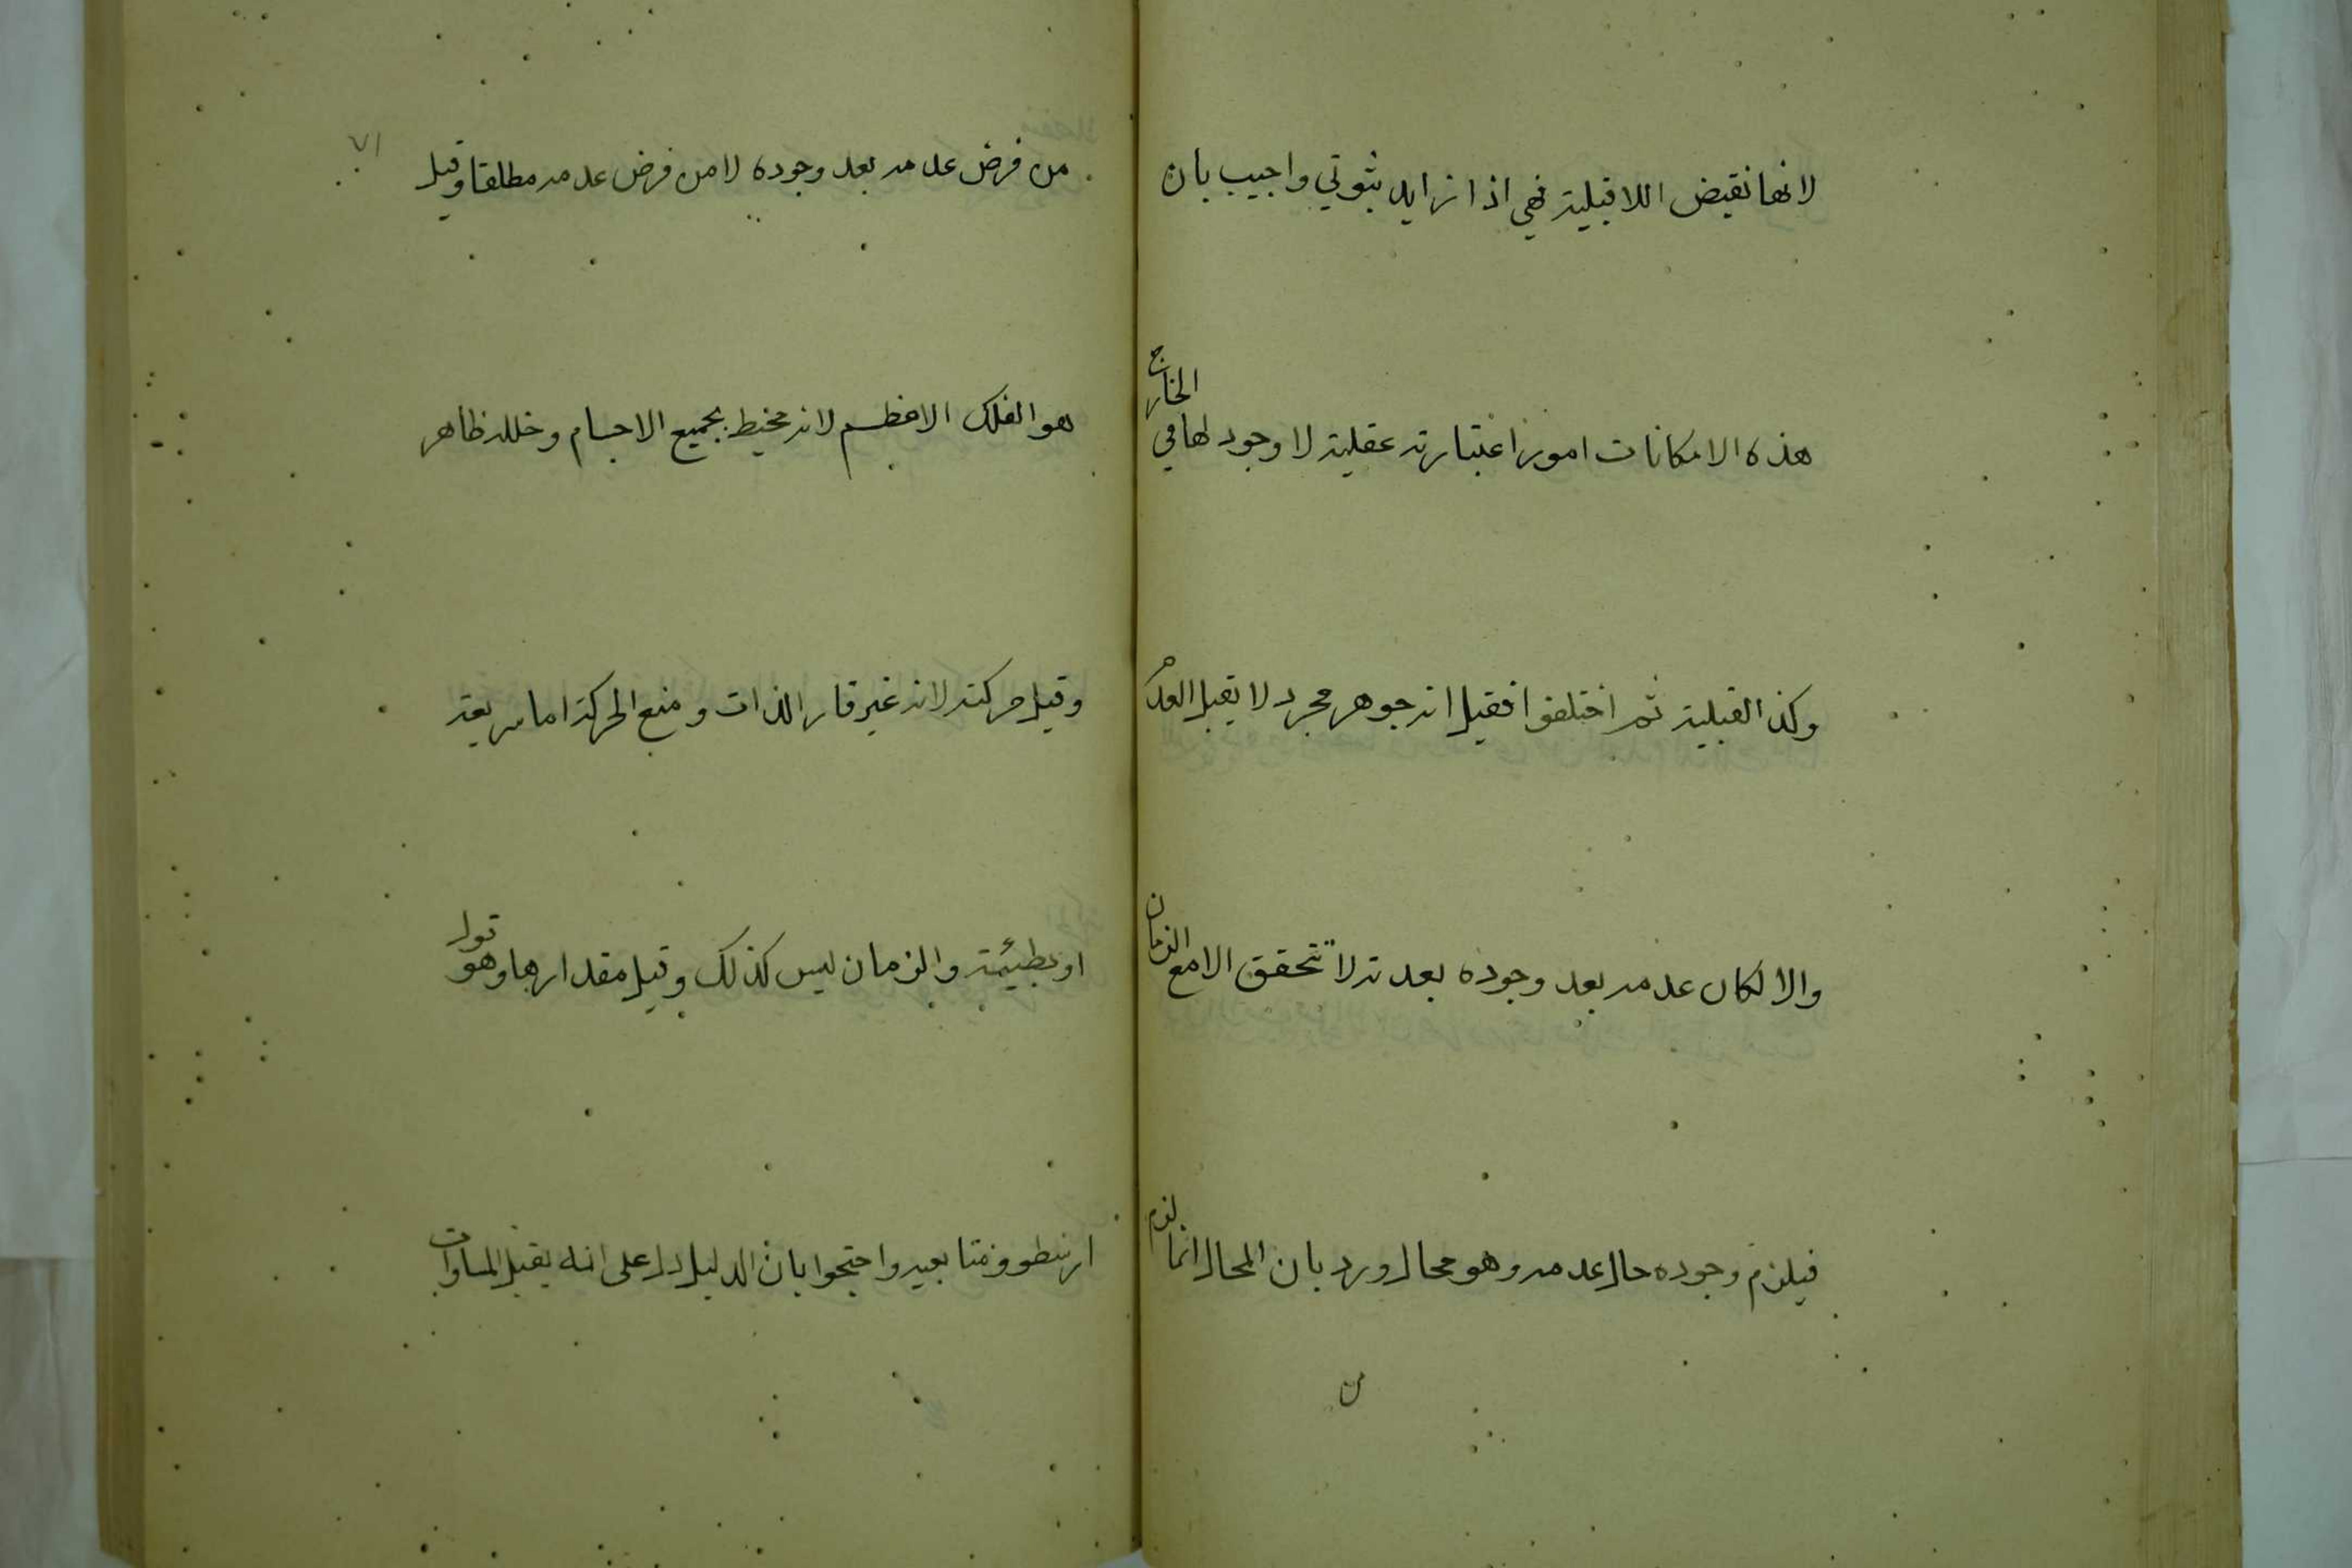 لانها نقيض اللاقبلية فهي اذا زايد ثبوتي واجيب بان
هذه الامكانات امور اعتبارية عقلية لا وجود لها في الخارج
وكذا القبلية ثم اختلفوا فقيل انه جوهر مجرد لا يقبل العدم
والا لكان عدمه بعد وجوده بعدية لا تتحقق الا مع الزمان
فيلزم وجوده حال عدمه وهو محال ورد بان المحال انما لزم
من
٧١
من فرض عدمه بعد وجوده لا من فرض عدمه مطلقا وقيل
هو الفلك الاعظم لانه محيط بجميع الاجسام وخلله ظاهر
وقيل حركته لانه غير قار الذات ومنع الحركة اما سريعة
او بطيئة والزمان ليس كذلك وقيل مقدارها وهو قول
ارسطو ومتابعيه واحتجوا بان الدليل دل على انه يقبل المساوات